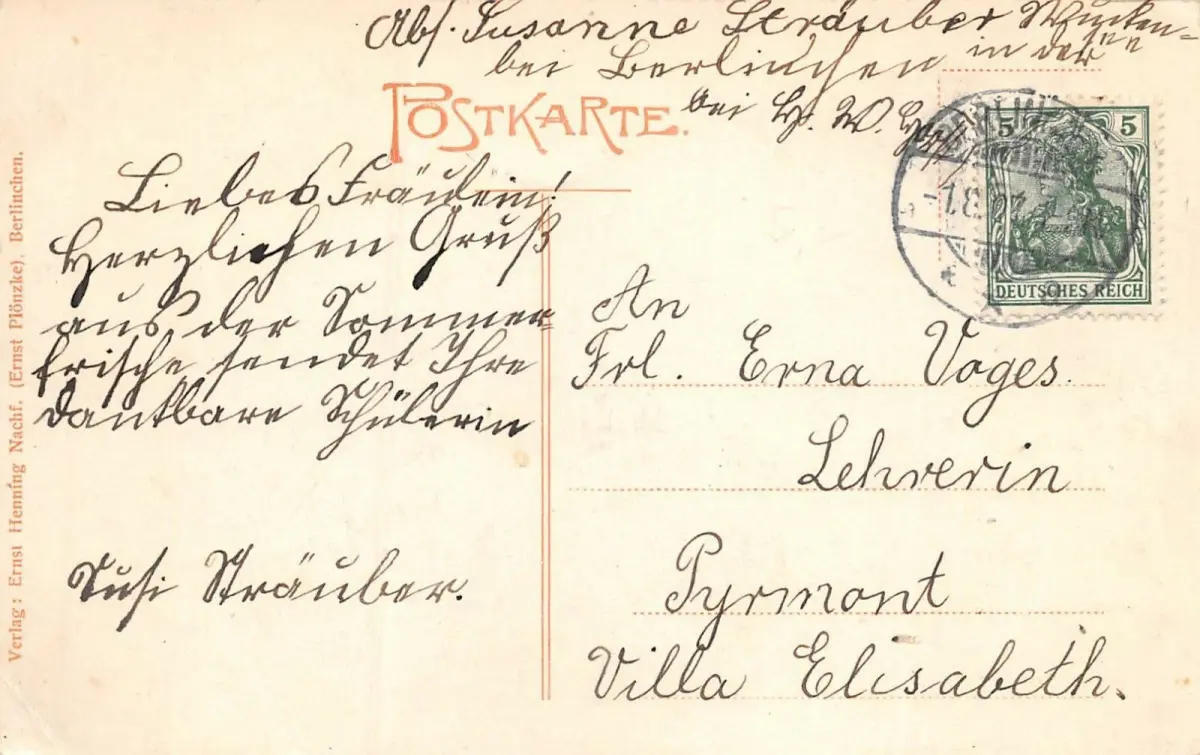 Abs. Susanne Sträuber
bei Berlinchen in der
bei H. W.
POSTKARTE.
Liebes Fräulein!
Herzlichen Gruß
aus der Sommer-
frische sendet Ihre
dankbare Schülerin
Susi Sträuber.
5 5
DEUTSCHES REICH
An
Frl. Erna Voges.
Lehrerin
Pyrmont
Villa Elisabeth.
Verlag: Ernst Henning Nachf. (Ernst Plönzke), Berlinchen.